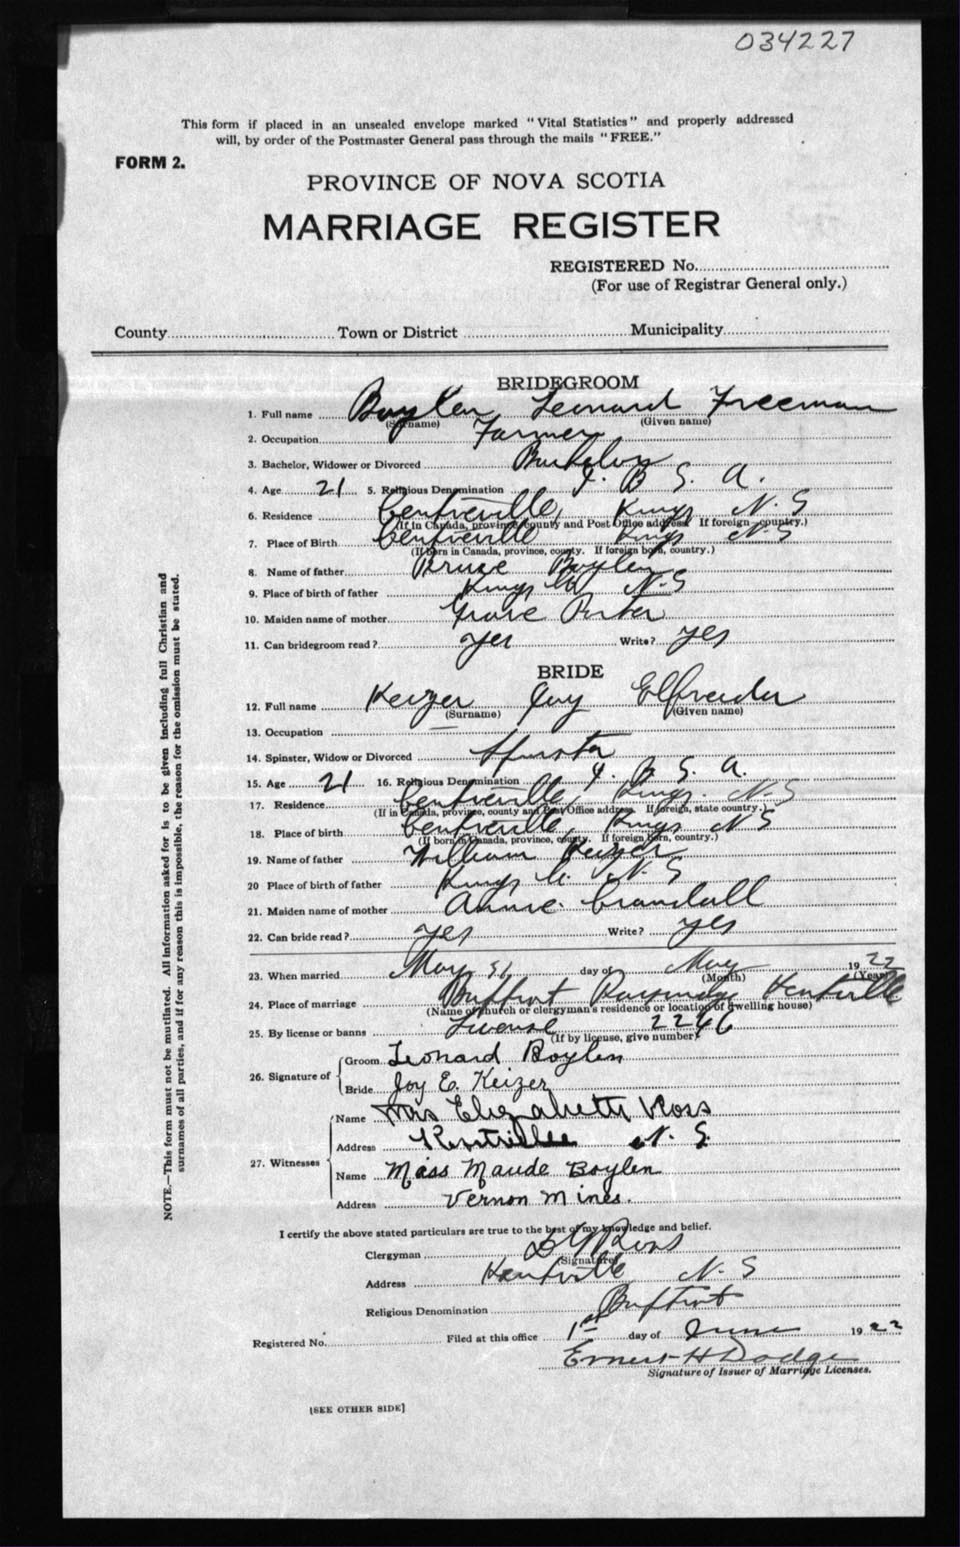 034227
This form if placed in an unsealed envelope marked "Vital Statistics" and properly addressed
will, by order of the Postmaster General pass through the mails "FREE."
FORM 2.
PROVINCE OF NOVA SCOTIA
MARRIAGE REGISTER
REGISTERED No.
(For use of Registrar General only.)
County Town or District Municipality
BRIDEGROOM
1. Full name Boylen Leonard Freeman
(Surname) (Given name)
2. Occupation Farmer
3. Bachelor, Widower or Divorced Bachelor
4. Age 21 5. Religious Denomination I. B. S. A.
6. Residence Centreville, Kings N. S
(If in Canada, province, county and Post Office address. If foreign country.)
7. Place of Birth Centreville Kings N. S
(If born in Canada, province, county. If foreign born, country.)
8. Name of father Boylen
9. Place of birth of father Kings Co N. S
10. Maiden name of mother Porter
11. Can bridegroom read? yes Write? yes
BRIDE
12. Full name Keizer Joy Elfreeda
(Surname) (Given name)
13. Occupation
14. Spinster, Widow or Divorced Spinster
15. Age 21 16. Religious Denomination I. B. S. A.
17. Residence Centreville Kings. N. S
(If in Canada, province, county and Post Office address. If foreign, state country.)
18. Place of birth Centreville, Kings N S
(If born in Canada, province, county. If foreign born, country.)
19. Name of father William Keizer
20 Place of birth of father Kings Co. N. S
21. Maiden name of mother Annie Crandall
22. Can bride read? yes Write? yes
23. When married May 31 day of May 1922
(Month) (Year)
24. Place of marriage Baptist Parsonage Kentville
(Name of church or clergyman's residence or location of dwelling house)
25. By license or banns License 2266
(If by license, give number)
26. Signature of
Groom Leonard Boylen
Bride Joy E. Keizer
27. Witnesses
Name Mrs Elizabeth Ross
Address Kentville N. S
Name Miss Maude Boylen
Address Vernon Mines.
I certify the above stated particulars are true to the best of my knowledge and belief.
Clergyman Ross
(Signature)
Address Kentville N. S
Religious Denomination Baptist
Registered No. Filed at this office 1st day of June 1922
Ernest H Dodge
Signature of Issuer of Marriage Licenses.
[SEE OTHER SIDE]
NOTE.—This form must not be mutilated. All information asked for is to be given including full Christian and
surnames of all parties, and if for any reason this is impossible, the reason for the omission must be stated.